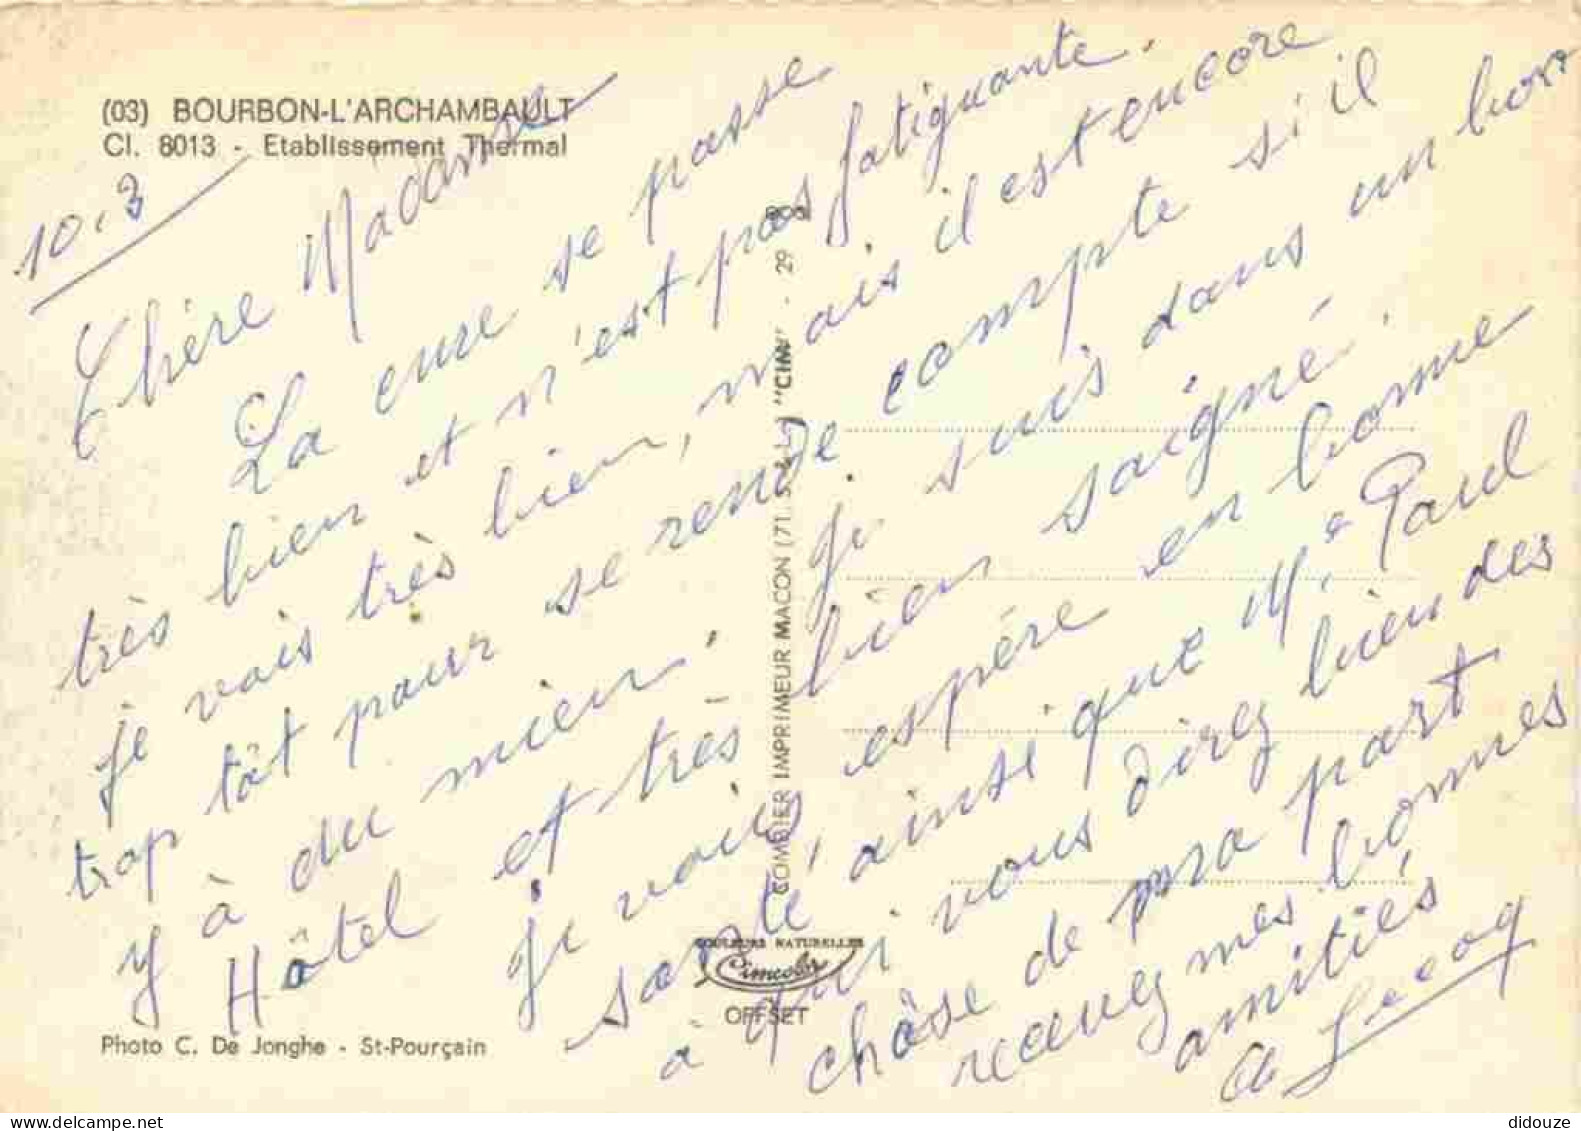 (03) BOURBON-L'ARCHAMBAULT
Cl. 8013 - Etablissement Thermal
10.3
Chère Madame
La cure se passe
très bien et n'est pas fatiguante.
je vais très bien, mais il est encore
trop tôt pour se rende compte si il
y à du mieux. je suis dans un bon
Hôtel et très bien saigné.
je vous espère en bonne
santé, ainsi que Mr Paul
à qui vous direz bien des
chôse de ma part
recevez mes bonnes
amitiés
Lecoq
COMBIER IMPRIMEUR MACON (71. S.&L.) "CIM" - 29
COULEURS NATURELLES
Cimcolor
OFFSET
Photo C. De Jonghe - St-Pourçain
delcampe.net
didouze